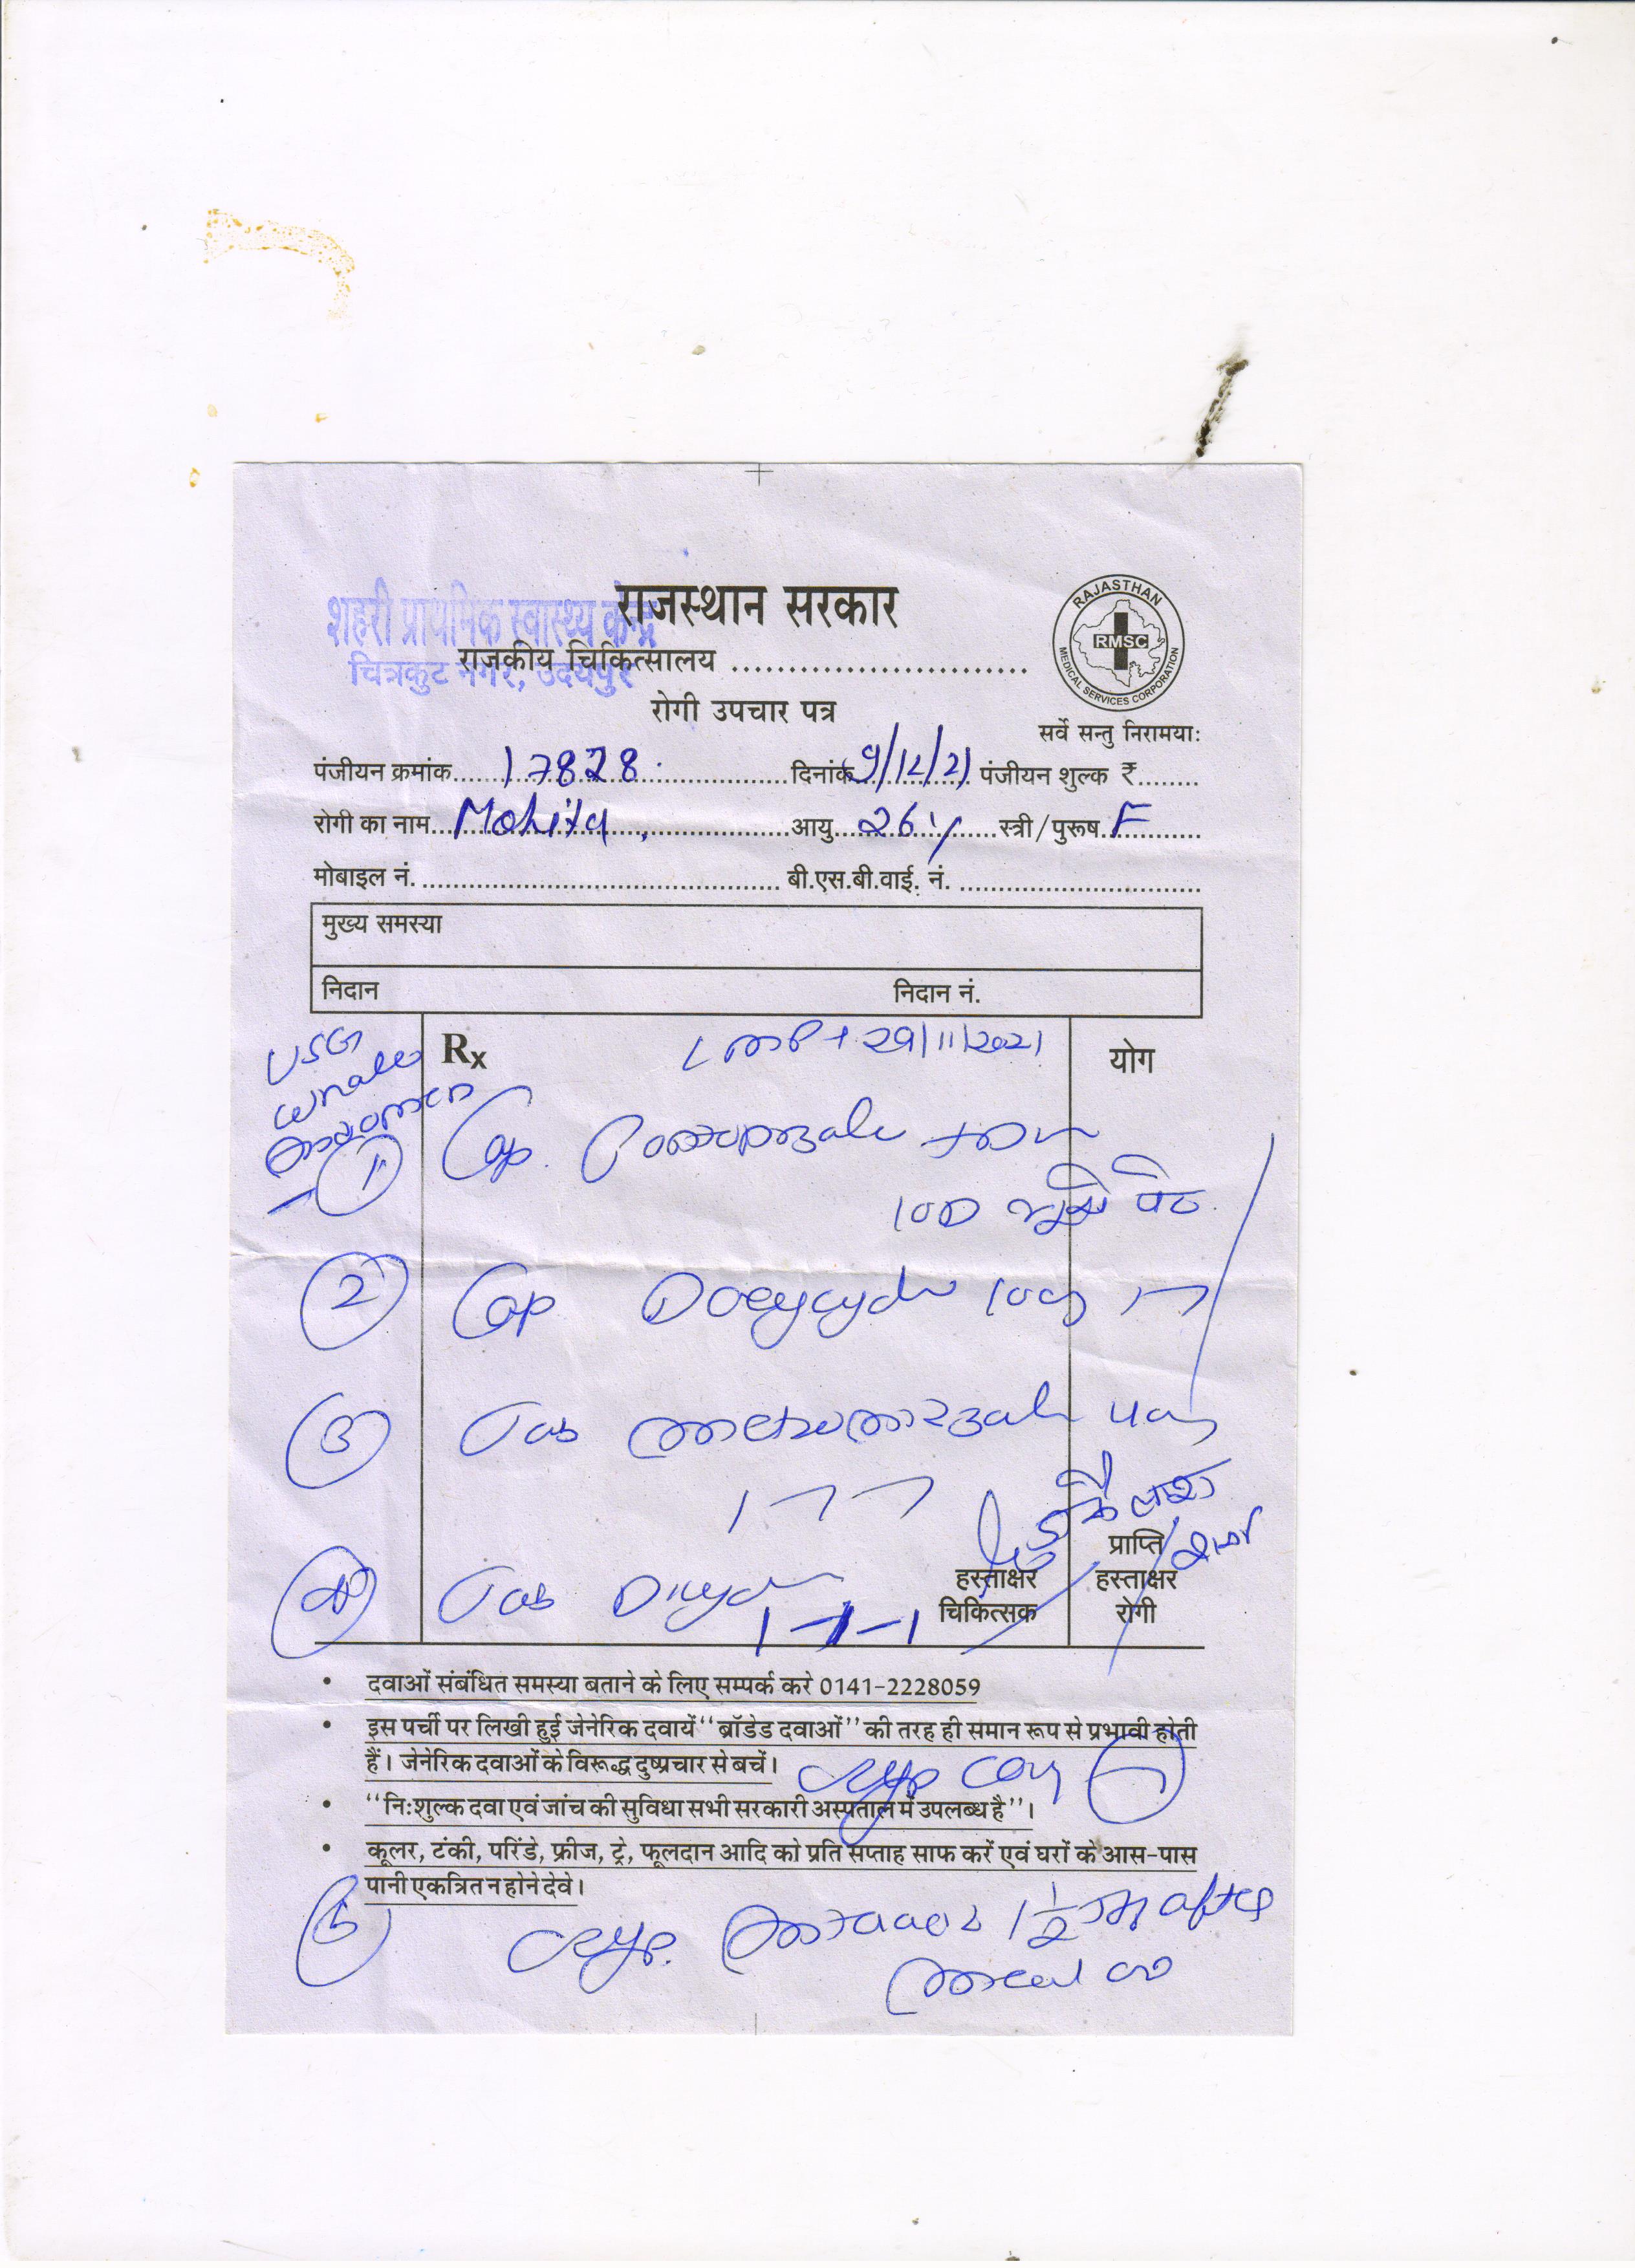 शहरी प्राथमिक स्वास्थ्य केन्द्र
चित्रकुट नगर, उदयपुर
राजस्थान सरकार
राजकीय चिकित्सालय ..........................
रोगी उपचार पत्र
RAJASTHAN
RMSC
MEDICAL SERVICES CORPORATION
सर्वे सन्तु निरामयाः
पंजीयन क्रमांक 17828 दिनांक 9/12/21 पंजीयन शुल्क ₹
रोगी का नाम Mohita आयु 26 y स्त्री/पुरूष F
मोबाइल नं. बी.एस.बी.वाई. नं.
मुख्य समस्या
निदान निदान नं.
USG
Whole
Abdomen
Rx LMP + 29/11/2021 योग
1 Cap. Pantoprazole
100 भूखे पेट
2 Cap Doxycycline 100
3 Tab Metronidazole
कैलाश
शर्मा
प्राप्ति
हस्ताक्षर हस्ताक्षर
चिकित्सक रोगी
4 Tab 1-1-1
• दवाओं संबंधित समस्या बताने के लिए सम्पर्क करे 0141-2228059
• इस पर्ची पर लिखी हुई जेनेरिक दवायें "ब्रॉडेड दवाओं" की तरह ही समान रूप से प्रभावी होती
हैं। जेनेरिक दवाओं के विरूद्ध दुष्प्रचार से बचें।
• "निःशुल्क दवा एवं जांच की सुविधा सभी सरकारी अस्पताल में उपलब्ध है"।
• कूलर, टंकी, परिंडे, फ्रीज, ट्रे, फूलदान आदि को प्रति सप्ताह साफ करें एवं घरों के आस-पास
पानी एकत्रित न होने देवे।
5 Syp. Antacid 1 1/2 after
meal